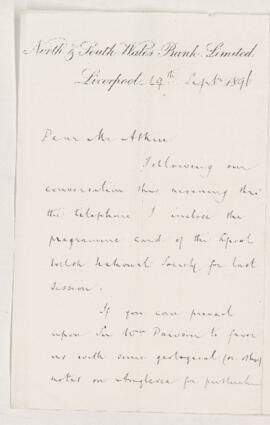 North & South Wales Bank Limited.
Liverpool. 19th Sept 1896
Dear Mr
Following our
conversation this morning thro
the telephone I inclose the
programme card of the Lpool
Welsh National Society for last
session.
If you can prevail
upon Sir Wm Dawson to favor
us with some geological (or other)
notes on Anglesea for